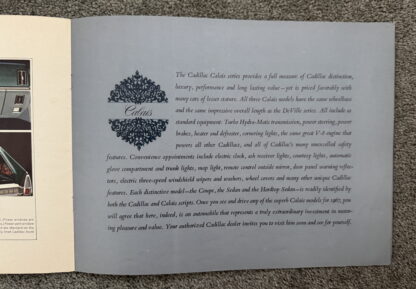 Calais
The Cadillac Calais series provides a full measure of Cadillac distinction,
luxury, performance and long lasting value—yet is priced favorably with
many cars of lesser stature. All three Calais models have the same wheelbase
and the same impressive overall length as the DeVille series. All include as
standard equipment: Turbo Hydra-Matic transmission, power steering, power
brakes, heater and defroster, cornering lights, the same great V-8 engine that
powers all other Cadillacs, and all of Cadillac's many unexcelled safety
features. Convenience appointments include electric clock, ash receiver lights, courtesy lights, automatic
glove compartment and trunk lights, map light, remote control outside mirror, door panel warning reflec-
tors, electric three-speed windshield wipers and washers, wheel covers and many other unique Cadillac
features. Each distinctive model—the Coupe, the Sedan and the Hardtop Sedan—is readily identified by
both the Cadillac and Calais scripts. Once you see and drive any of the superb Calais models for 1967, you
will agree that here, indeed, is an automobile that represents a truly extraordinary investment in motor-
ing pleasure and value. Your authorized Cadillac dealer invites you to visit him soon and see for yourself.